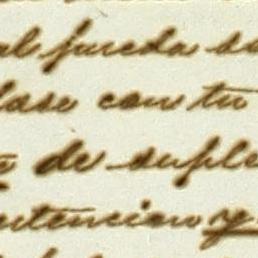 al pueda su
lase con tu
de suple
utencion y